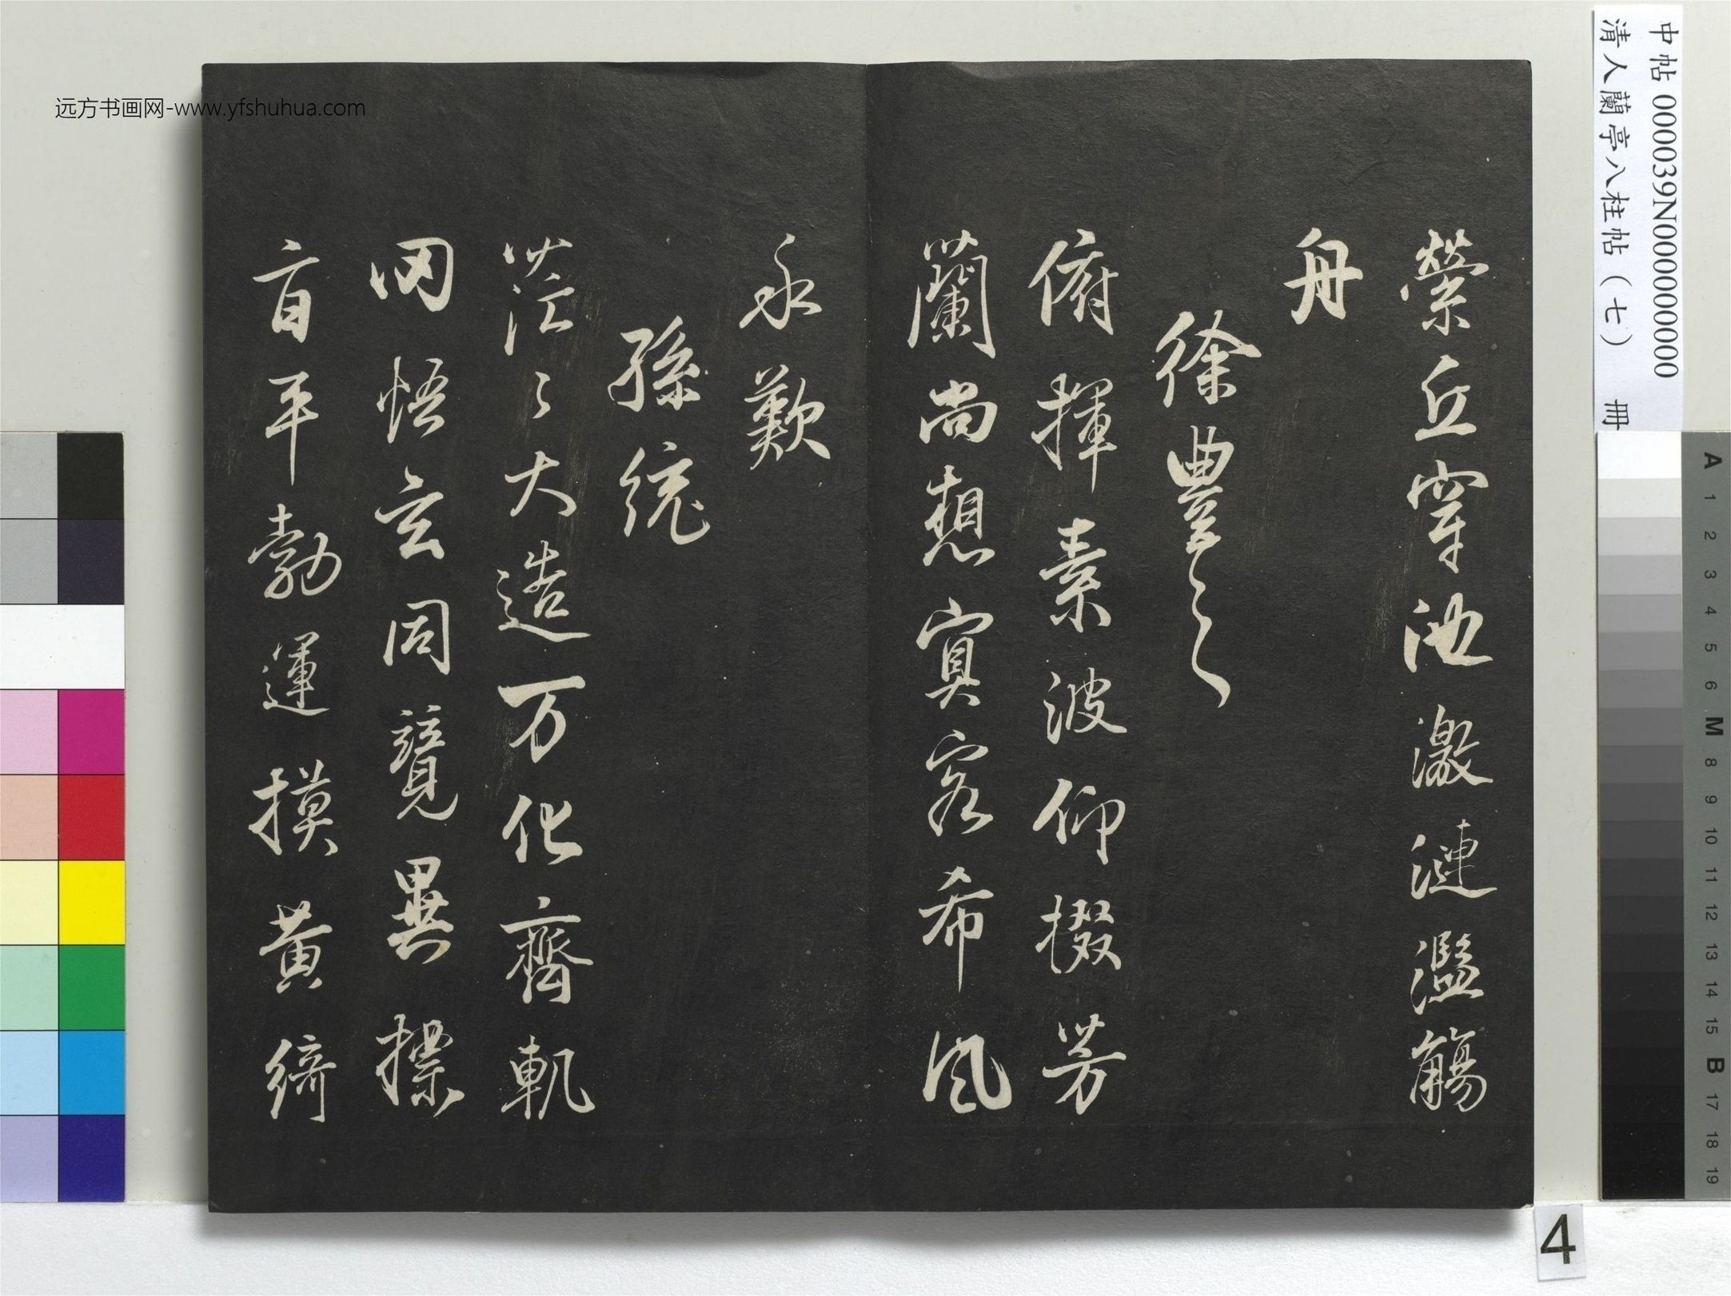 中帖 000039N000000000
清人蘭亭八柱帖(七) 冊
远方书画网-www.yfshuhua.com
縈丘穿池激漣濫觴
舟
徐豐之
俯揮素波仰掇芳
蘭尚想㝠客希風
永歎
孫統
茫〻大造万化齊軌
罔悟玄同競異摽
旨平勃運摸黃綺
A 1 2 3 4 5 6 M 8 9 10 11 12 13 14 15 B 17 18 19
4